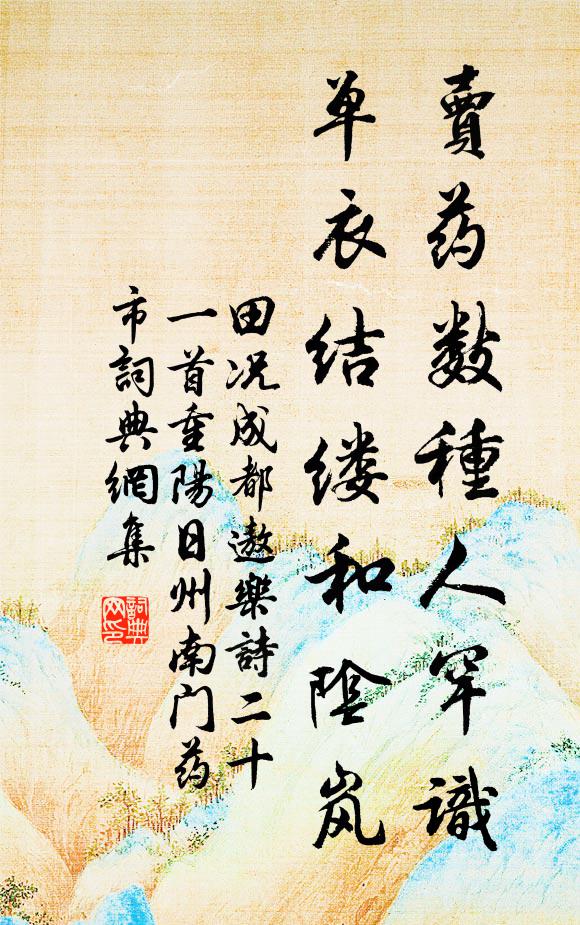 賣药数種人罕識
单衣结缕和陰岚
田况成都遨樂詩二十
一首重陽日州南门药
市詞典網集
詞典網印